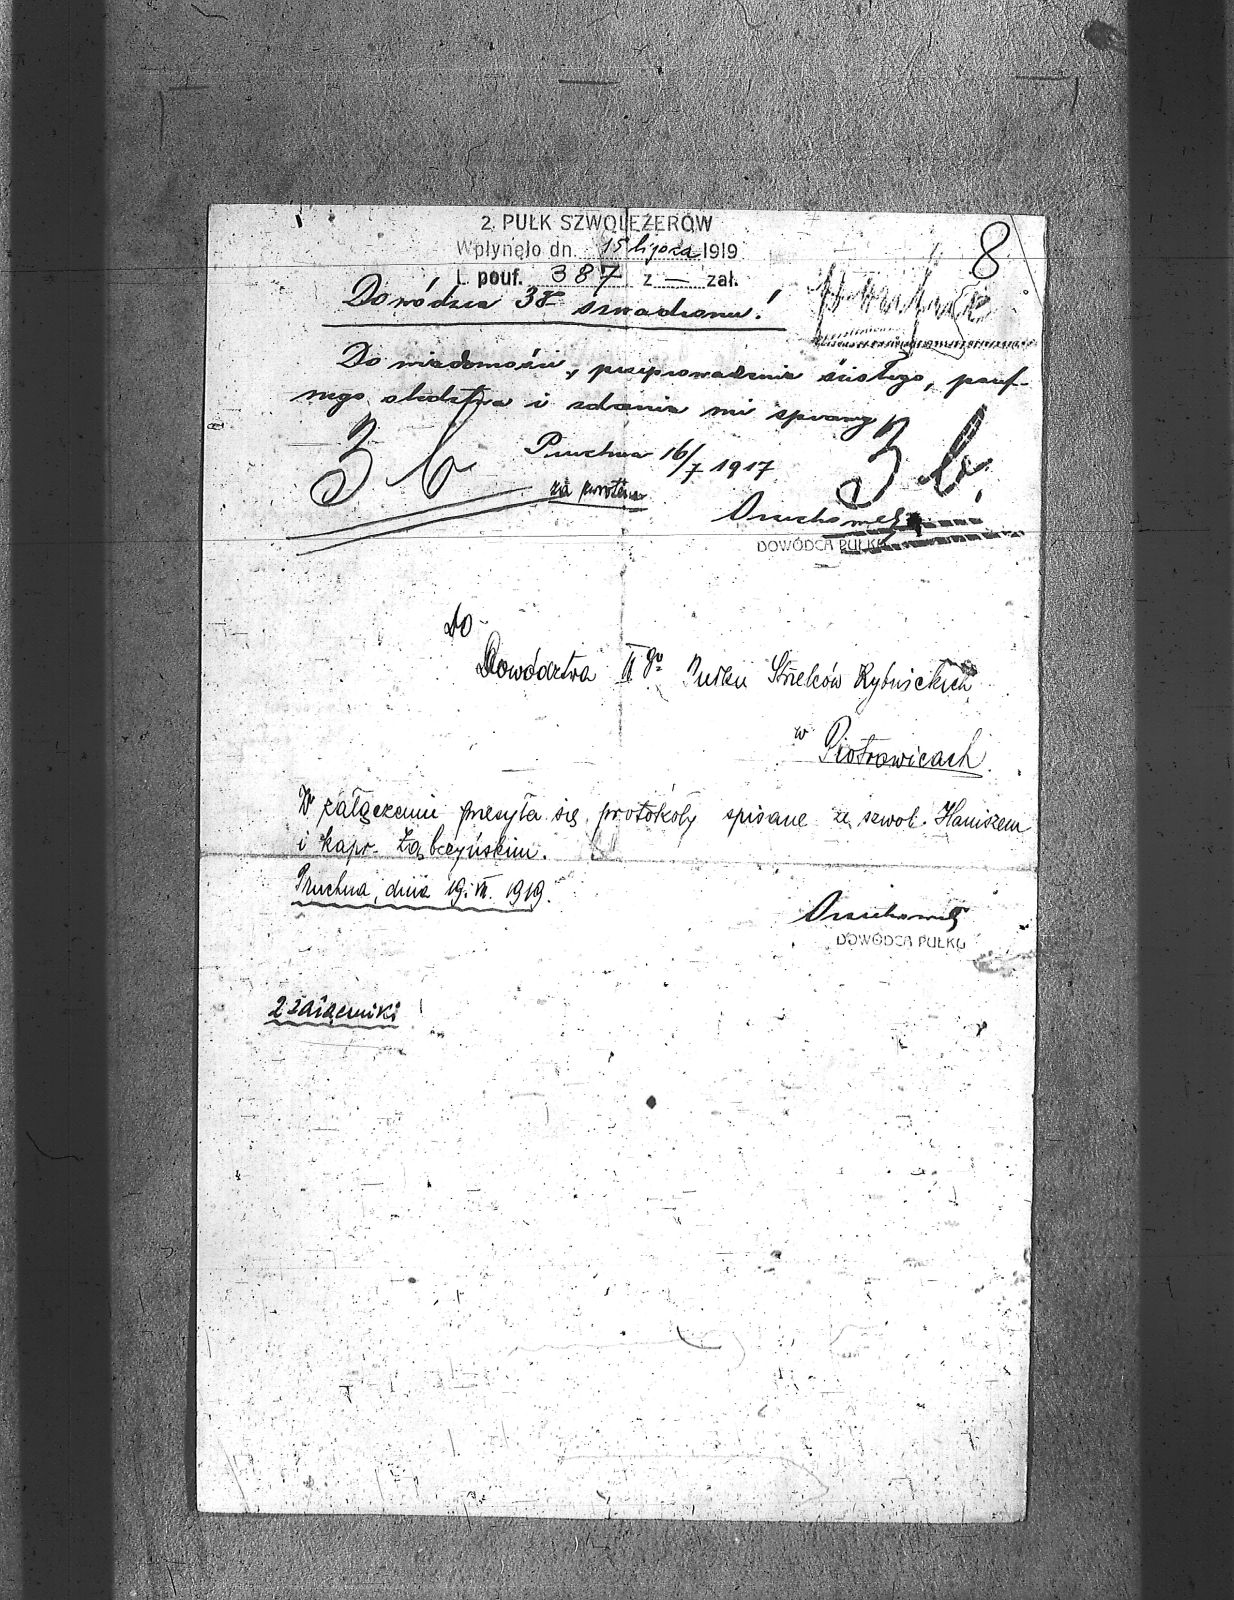 8
2. PUŁK SZWOLEŻERÓW
Wpłynęło dn. 15 lipca 1919
L. pouf. 387 z — zał.
Dowódca 3go szwadronu!
poufne
Do wiadomości, przeprowadzenia ścisłego, pouf-
nego śledztwa i zdania mi sprawy
Pruchna 16/7 1917
3 b
3 b
za zwrotem
DOWÓDCA PUŁKU
Do
Dowództwa II go Pułku Strzelców Bytomskich
w Piotrowicach
W załączeniu przesyła się protokóły spisane ze szwol. Haniszem
i kapr. Ząbczyńskim.
Pruchna, dnia 19. VII. 1919.
DOWÓDCA PUŁKU
2 załączniki